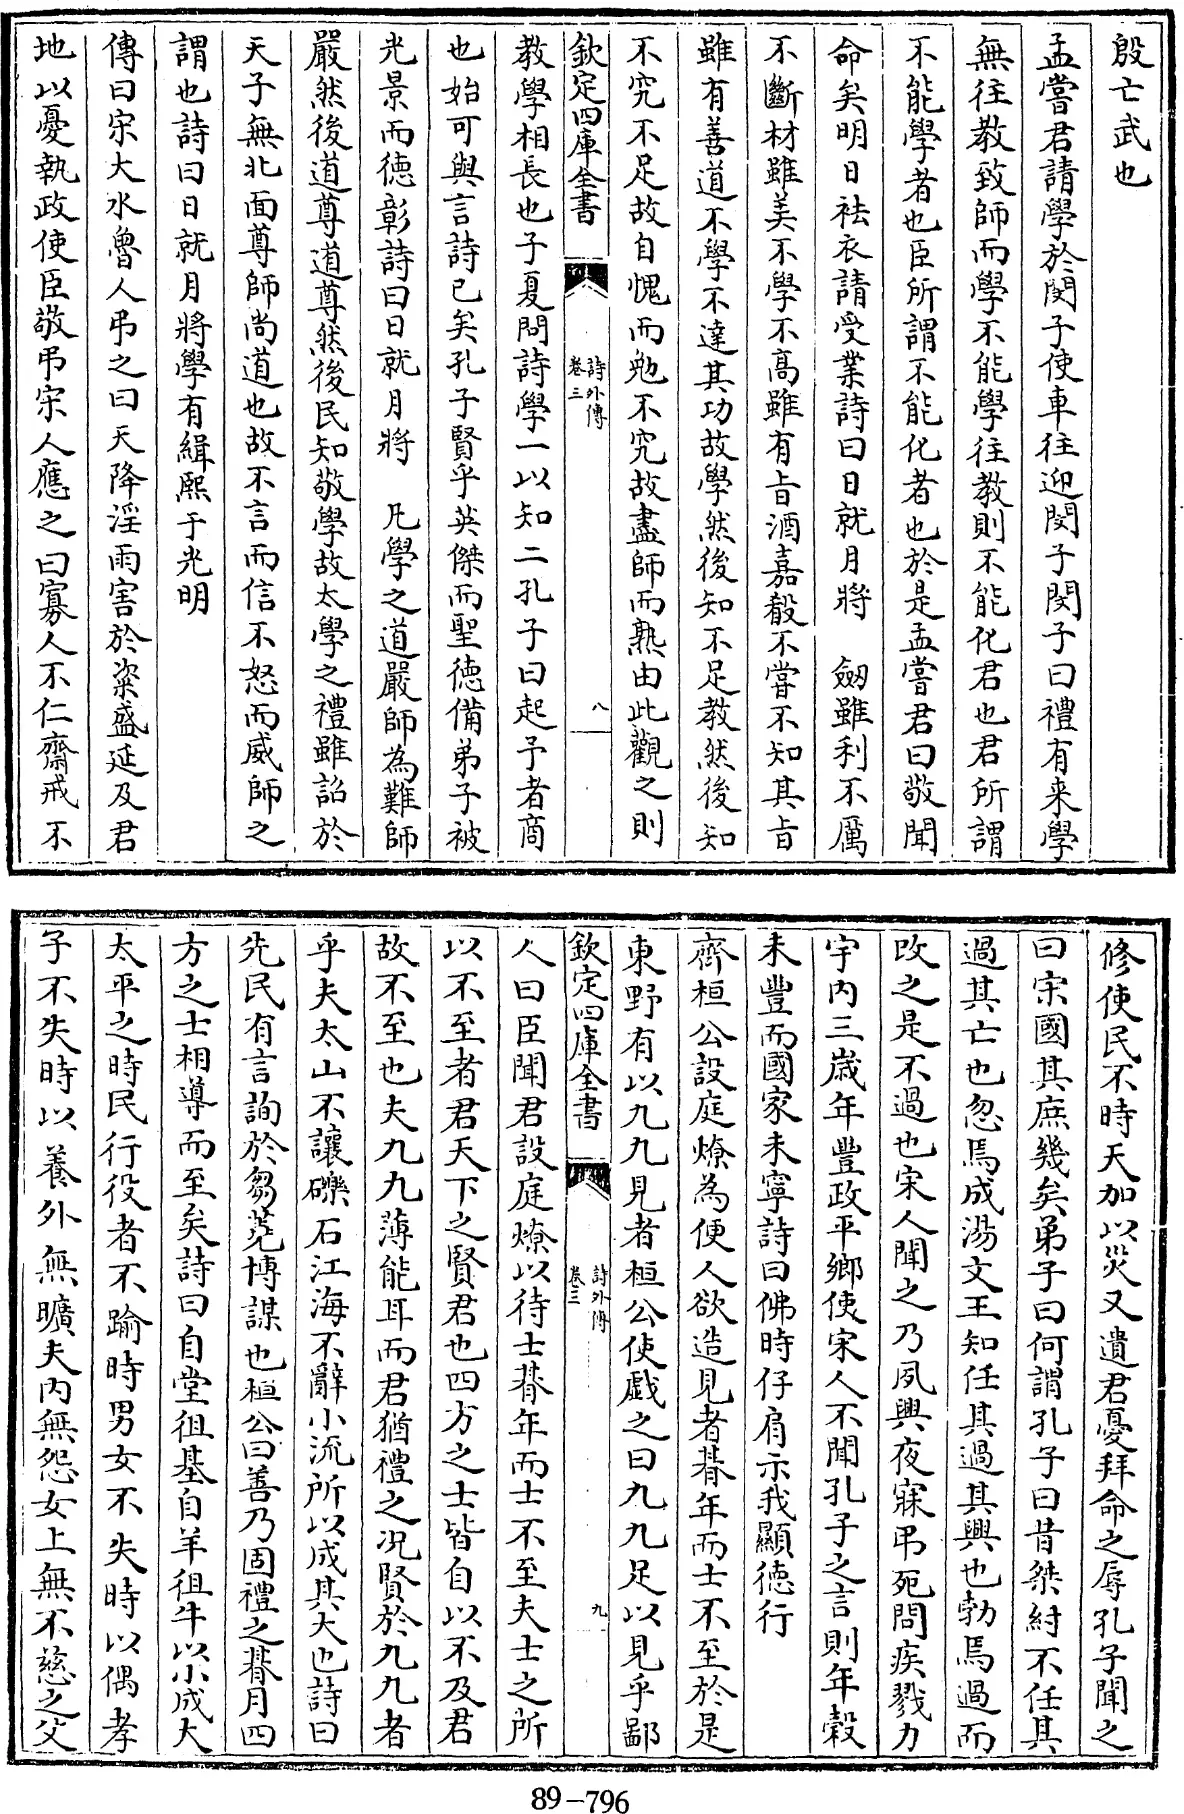 殷亡武也
孟嘗君請學於閔子使車往迎閔子閔子曰禮有来學
無往教致師而學不能學往教則不能化君也君所謂
不能學者也臣所謂不能化者也於是孟嘗君曰敬聞
命矣明日袪衣請受業詩曰日就月將　劔雖利不厲
不斷材雖美不學不高雖有旨酒嘉殽不嘗不知其旨
雖有善道不學不達其功故學然後知不足教然後知
不究不足故自愧而勉不究故盡師而熟由此觀之則
欽定四庫全書
詩外傳
卷三
八
教學相長也子夏問詩學一以知二孔子曰起予者商
也始可與言詩已矣孔子賢乎英傑而聖德備弟子被
光景而德彰詩曰日就月將　凡學之道嚴師為難師
嚴然後道尊道尊然後民知敬學故太學之禮雖詔於
天子無北面尊師尚道也故不言而信不怒而威師之
謂也詩曰日就月將學有緝熙于光明
傳曰宋大水魯人弔之曰天降淫雨害於粢盛延及君
地以憂執政使臣敬弔宋人應之曰寡人不仁齋戒不
修使民不時天加以災又遺君憂拜命之辱孔子聞之
曰宋國其庶幾矣弟子曰何謂孔子曰昔桀紂不任其
過其亡也忽焉成湯文王知任其過其興也勃焉過而
改之是不過也宋人聞之乃夙興夜寐弔死問疾戮力
宇内三歲年豐政平鄉使宋人不聞孔子之言則年穀
未豐而國家未寧詩曰佛時仔肩示我顯德行
齊桓公設庭燎為便人欲造見者朞年而士不至於是
東野有以九九見者桓公使戲之曰九九足以見乎鄙
欽定四庫全書
詩外傳
卷三
九
人曰臣聞君設庭燎以待士朞年而士不至夫士之所
以不至者君天下之賢君也四方之士皆自以不及君
故不至也夫九九薄能耳而君猶禮之况賢於九九者
乎夫太山不讓礫石江海不辭小流所以成其大也詩曰
先民有言詢於芻蕘博謀也桓公曰善乃固禮之朞月四
方之士相導而至矣詩曰自堂徂基自羊徂牛以小成大
太平之時民行役者不踰時男女不失時以偶孝
子不失時以養外無曠夫内無怨女上無不慈之父
89-796